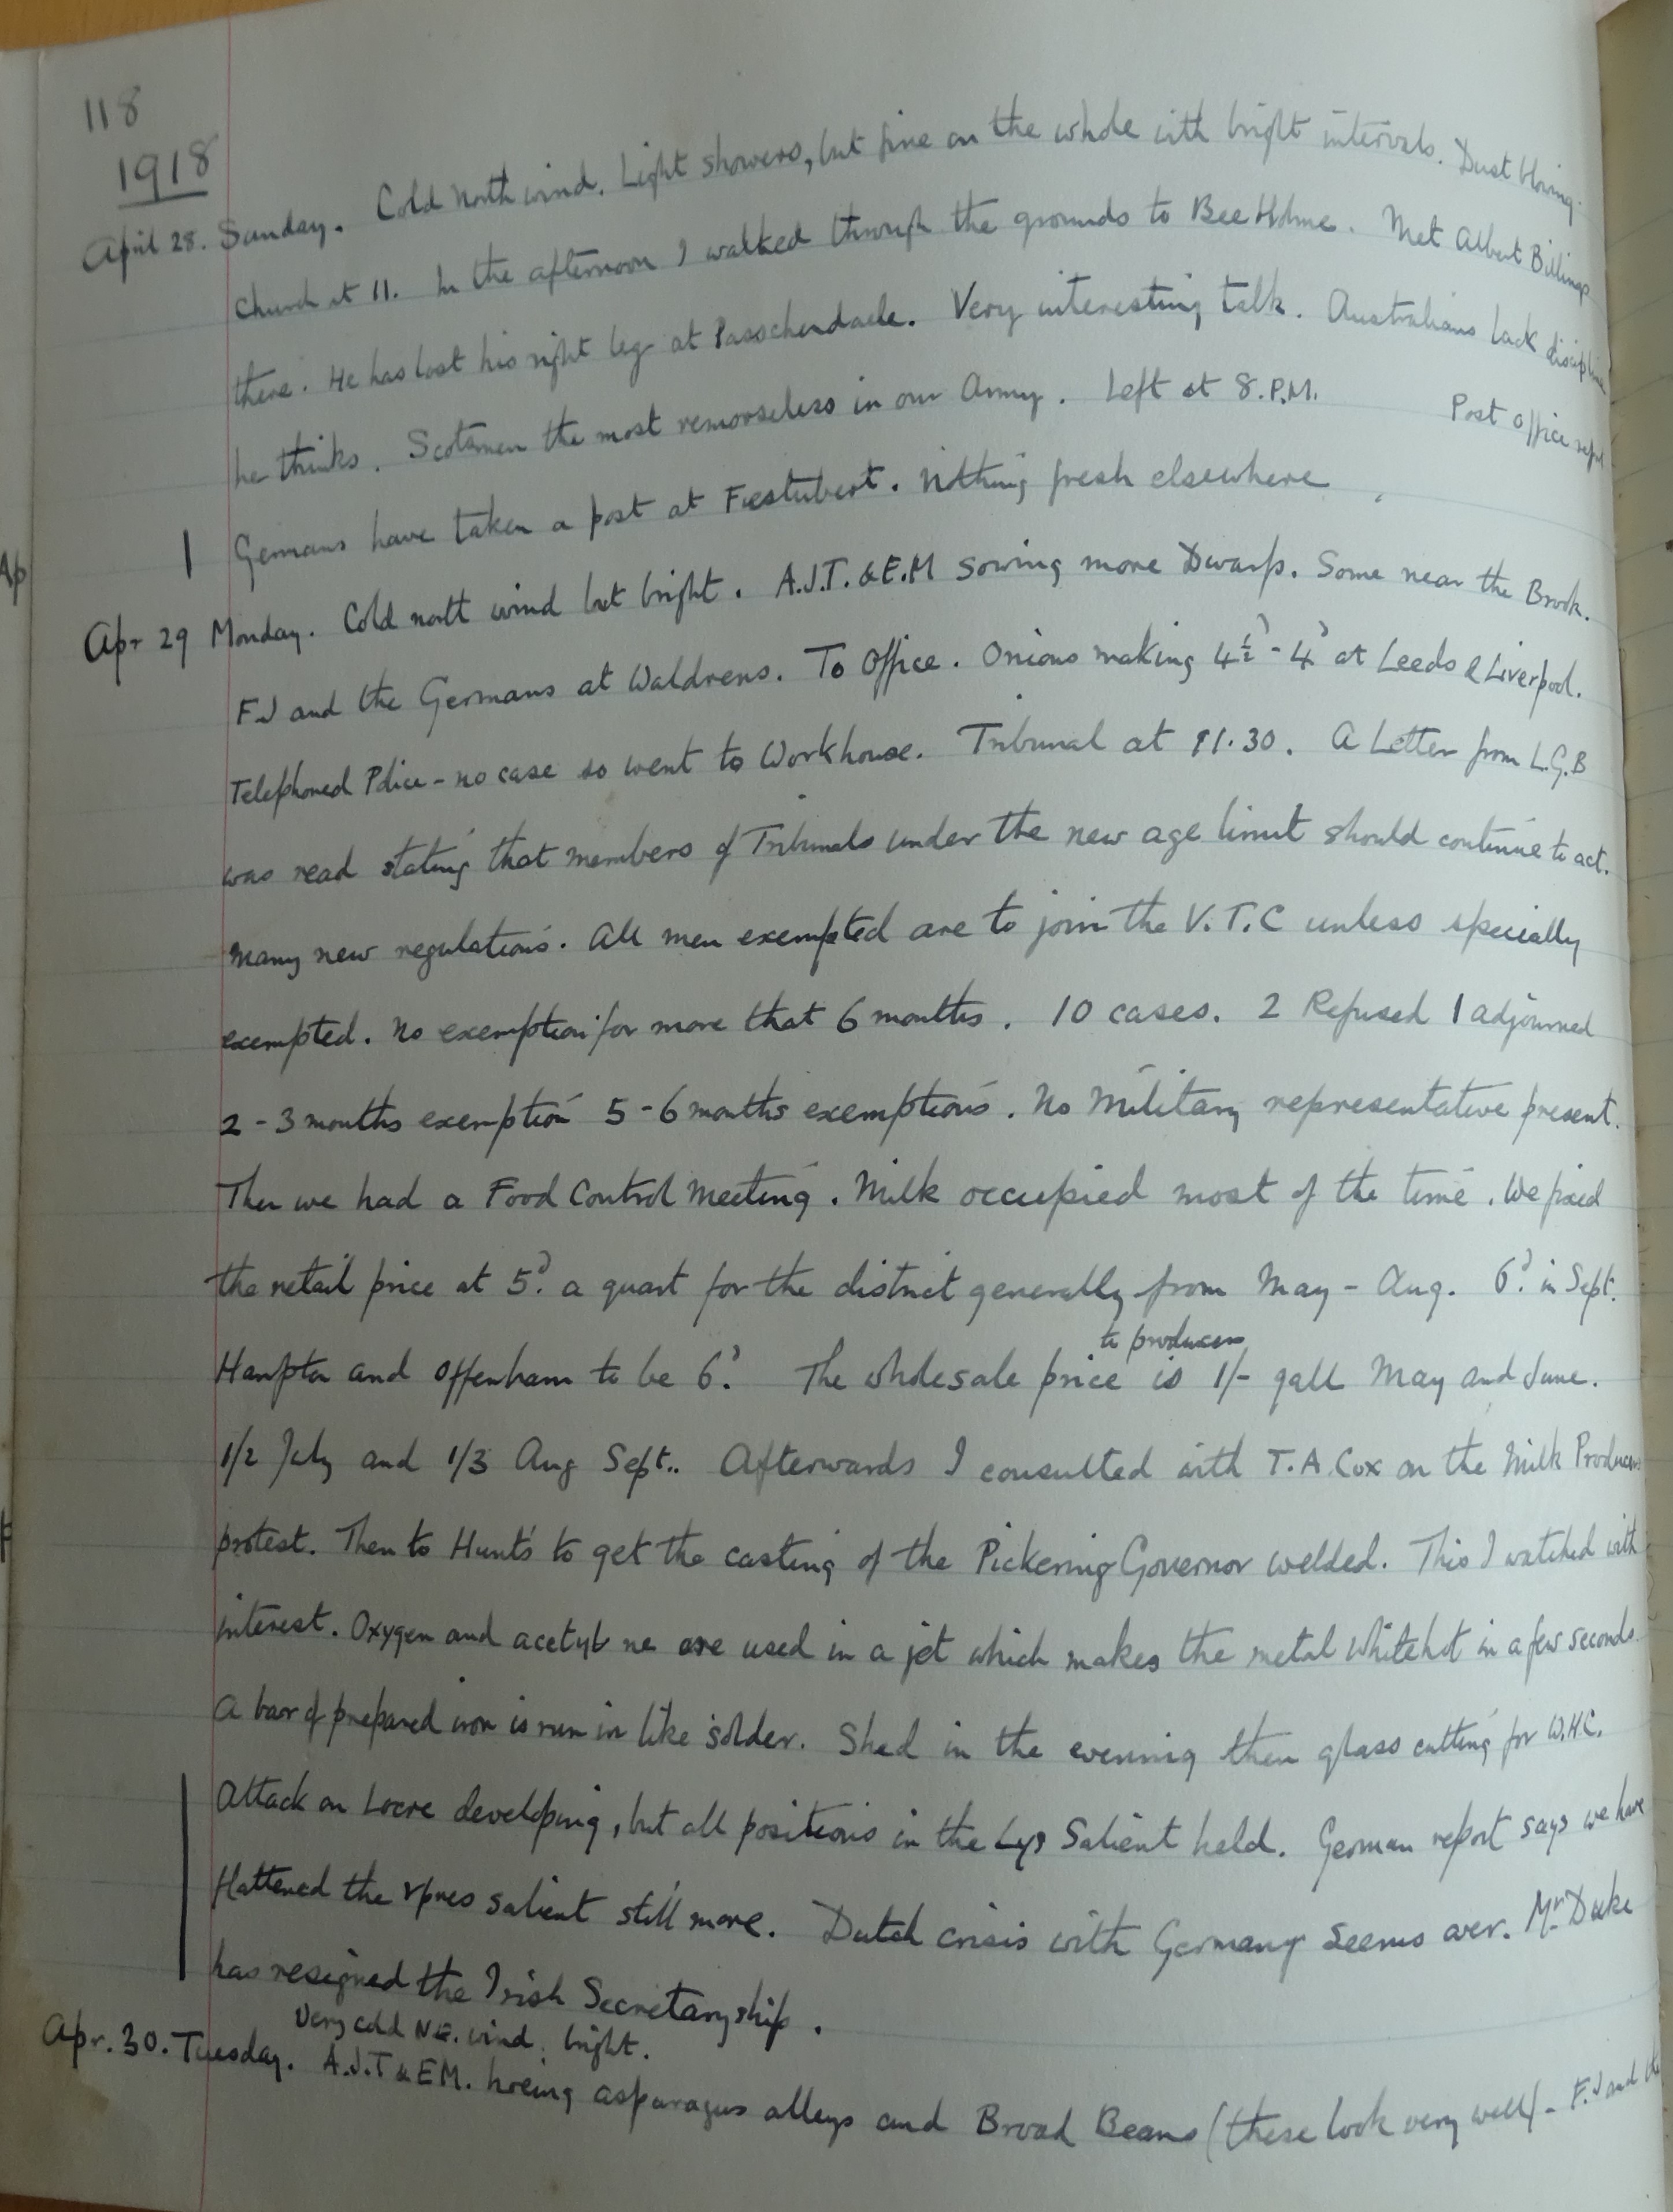 118
1918
April 28. Sunday. Cold north wind. Light showers, but fine on the whole with bright intervals. Dust blowing.
Church at 11. In the afternoon I walked through the grounds to Bee Holme. Met Albert Billings
there. He has lost his right leg at Passchendaele. Very interesting talk. Australians lack discipline
he thinks. Scotsmen the most remorseless in our Army. Left at 8.P.M. Post office report
Germans have taken a post at Festubert. Nothing fresh elsewhere
Apr 29 Monday. Cold north wind but bright. A.J.T. & E.M sowing more Dwarfs. Some near the Brook.
FJ and the Germans at Waldrens. To Office. Onions making 4½ᵈ - 4ᵈ at Leeds & Liverpool.
Telephoned Police - no case so went to Workhouse. Tribunal at 11.30. A Letter from L.G.B
was read stating that members of Tribunals under the new age limit should continue to act.
Many new regulations. All men exempted are to join the V.T.C unless specially
exempted. No exemption for more that 6 months. 10 cases. 2 Refused 1 adjourned
2 - 3 months exemption 5 - 6 months exemptions. No Military representative present.
Then we had a Food Control Meeting. Milk occupied most of the time. We fixed
the retail price at 5ᵈ. a quart for the district generally from May - Aug. 6ᵈ. in Sept.
Hampton and Offenham to be 6ᵈ. The wholesale price to producers is 1/- gall May and June.
1/2 July and 1/3 Aug Sept.. Afterwards I consulted with T.A.Cox on the Milk Producers
protest. Then to Hunt's to get the casting of the Pickering Governor welded. This I watched with
interest. Oxygen and acetylene are used in a jet which makes the metal whitehot in a few seconds.
A bar of prepared iron is run in like solder. Shed in the evening then glass cutting for W.H.C.
Attack on Locre developing, but all positions in the Lys Salient held. German report says we have
flattened the Ypres salient still more. Dutch crisis with Germany seems over. Mr Duke
has resigned the Irish Secretaryship.
Very cold N.E. wind. bright.
Apr. 30. Tuesday. A.J.T & EM. hoeing asparagus alleys and Broad Beans (these look very well) - F.J and the